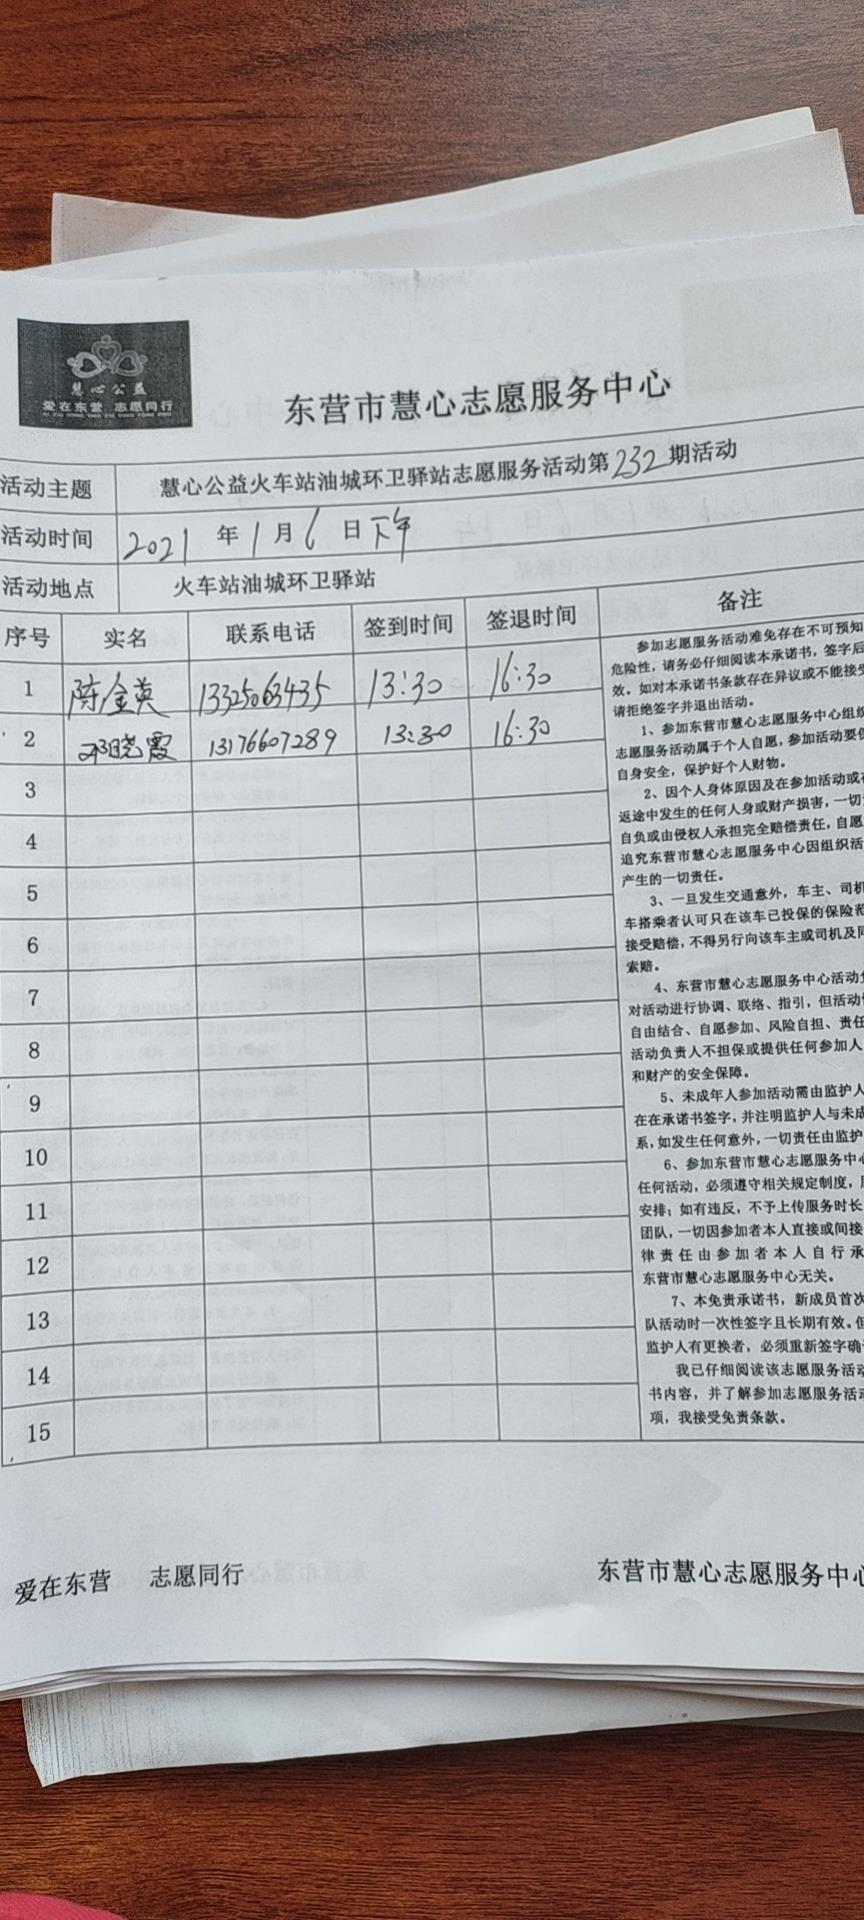 慧心公益
爱在东营 志愿同行
东营市慧心志愿服务中心
活动主题 慧心公益火车站油城环卫驿站志愿服务活动第232期活动
活动时间 2021 年 1 月 6 日 下午
活动地点 火车站油城环卫驿站
序号 实名 联系电话 签到时间 签退时间 备注
1 陈金英 13325063435 13:30 16:30
2 邓晓霞 13176607289 13:30 16:30
3
4
5
6
7
8
9
10
11
12
13
14
15
参加志愿服务活动难免存在不可预知
危险性，请务必仔细阅读本承诺书，签字后
效。如对本承诺书条款存在异议或不能接受
请拒绝签字并退出活动。
1、参加东营市慧心志愿服务中心组织
志愿服务活动属于个人自愿，参加活动要保
自身安全，保护好个人财物。
2、因个人身体原因及在参加活动或在
返途中发生的任何人身或财产损害，一切
自负或由侵权人承担完全赔偿责任，自愿
追究东营市慧心志愿服务中心因组织活
产生的一切责任。
3、一旦发生交通意外，车主、司机
车搭乘者认可只在该车已投保的保险范
接受赔偿，不得另行向该车主或司机及同
索赔。
4、东营市慧心志愿服务中心活动负
对活动进行协调、联络、指引，但活动
自由结合、自愿参加、风险自担、责任
活动负责人不担保或提供任何参加人
和财产的安全保障。
5、未成年人参加活动需由监护人
在在承诺书签字，并注明监护人与未成
系，如发生任何意外，一切责任由监护
6、参加东营市慧心志愿服务中心
任何活动，必须遵守相关规定制度，
安排；如有违反，不予上传服务时长
团队，一切因参加者本人直接或间接
律责任由参加者本人自行承
东营市慧心志愿服务中心无关。
7、本免责承诺书，新成员首次
队活动时一次性签字且长期有效。但
监护人有更换者，必须重新签字确
我已仔细阅读该志愿服务活动
书内容，并了解参加志愿服务活动
项，我接受免责条款。
爱在东营 志愿同行 东营市慧心志愿服务中心